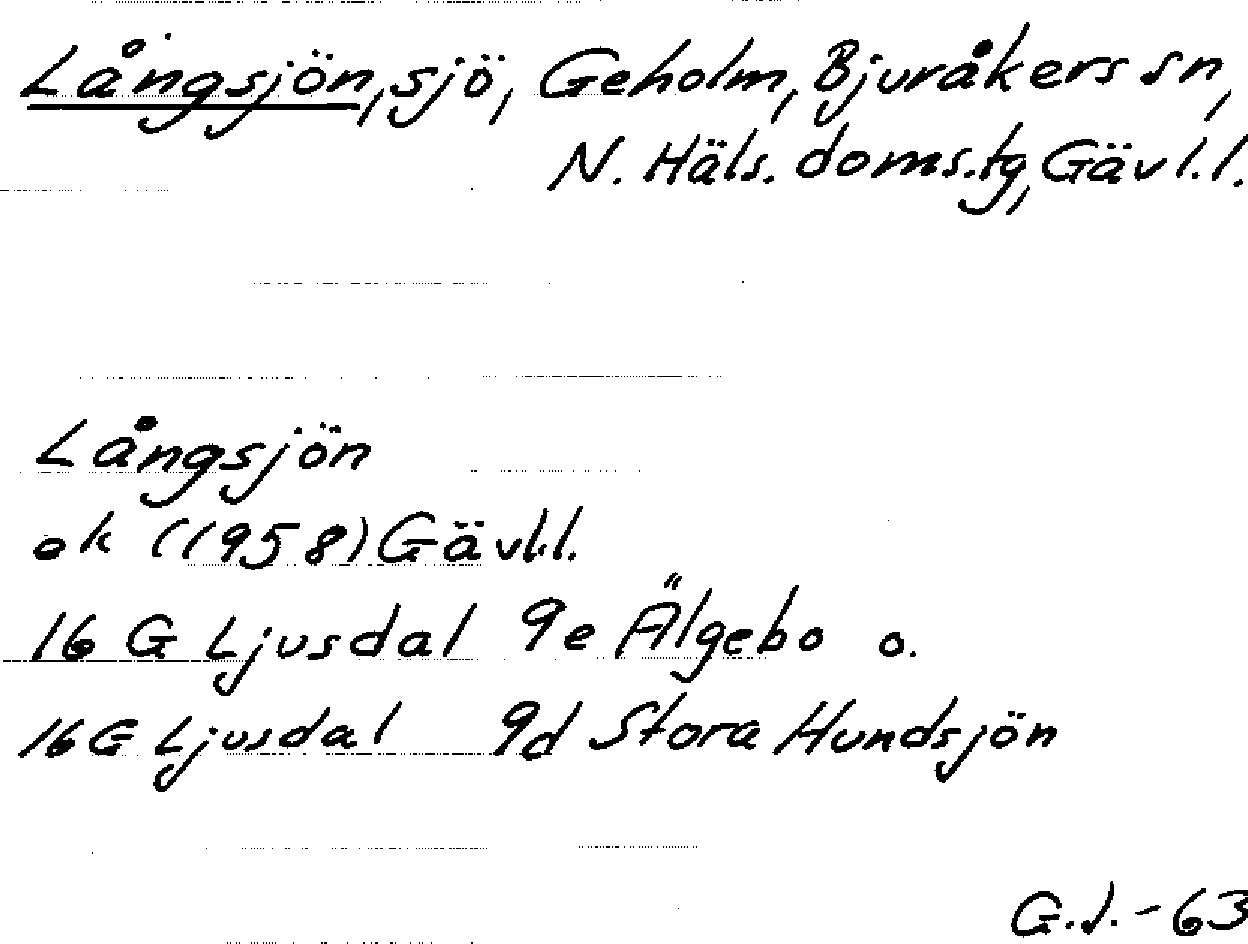 Långsjön, sjö, Geholm, Bjuråkers sn,
N. Häls. doms.tg, Gävl.l.
Långsjön
ek (1958) Gävl.l.
16 G Ljusdal 9e Älgebo o.
16 G Ljusdal 9d Stora Hundsjön
G.J. - 63